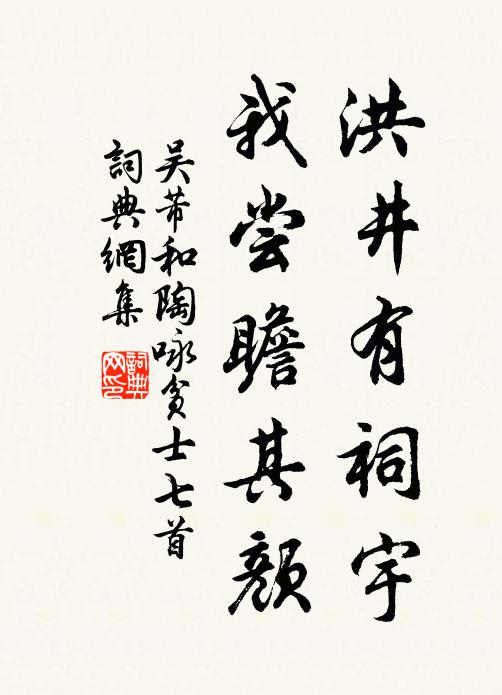 洪井有祠宇
我尝瞻其颜
吴芾和陶咏贫士七首
詞典網集
詞典网印